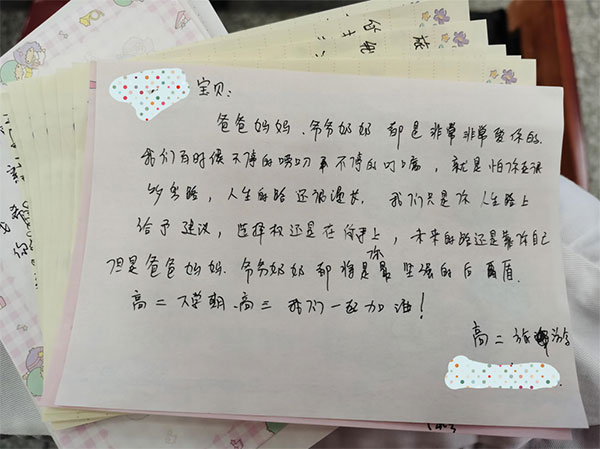 宝贝:
爸爸妈妈、爷爷奶奶 都是 非常非常爱你的.
我们有时候不停的唠叨 不停的叮嘱, 就是怕你走很
多弯路, 人生的路还很漫长. 我们只是你人生路上
给予 建议, 选择权还是在你手上, 未来的路还是靠你自己
但是爸爸妈妈. 爷爷奶奶都将是你最坚强的后盾.
高二下学期、高三 我们一起加油!
高二 旅游